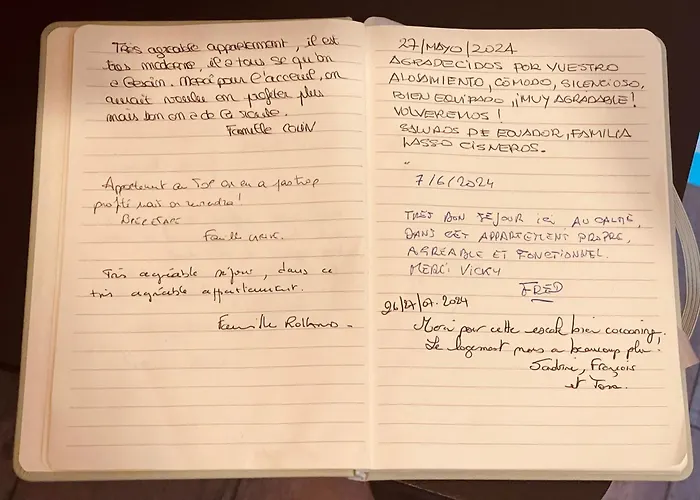 Très agréable appartement, il est
très moderne, il a tous se qu'on
a besoin. Merci pour l'acceuil, on
aurait voulu en profiter plus
mais bon on a de la route.
Famille COLIN
Appartement au Top on en a pas trop
profité mais on reviendra!
Famille
Très agréable séjour, dans ce
très agréable appartement.
Famille
27/MAYO/2024
AGRADECIDOS POR VUESTRO
ALOJAMIENTO, CÓMODO, SILENCIOSO,
BIEN EQUIPADO ¡¡MUY AGRADABLE!
VOLVEREMOS!
SALUDOS DE ECUADOR, FAMILIA
LASSO CISNEROS.
7/6/2024
TRÈS BON SÉJOUR ICI, AU CALME,
DANS CET APPARTEMENT PROPRE,
AGRÉABLE ET FONCTIONNEL.
MERCI VICKY
FRED
26/27/07.2024
Merci pour cette escale bien cocooning.
Le logement nous a beaucoup plu!
François
et